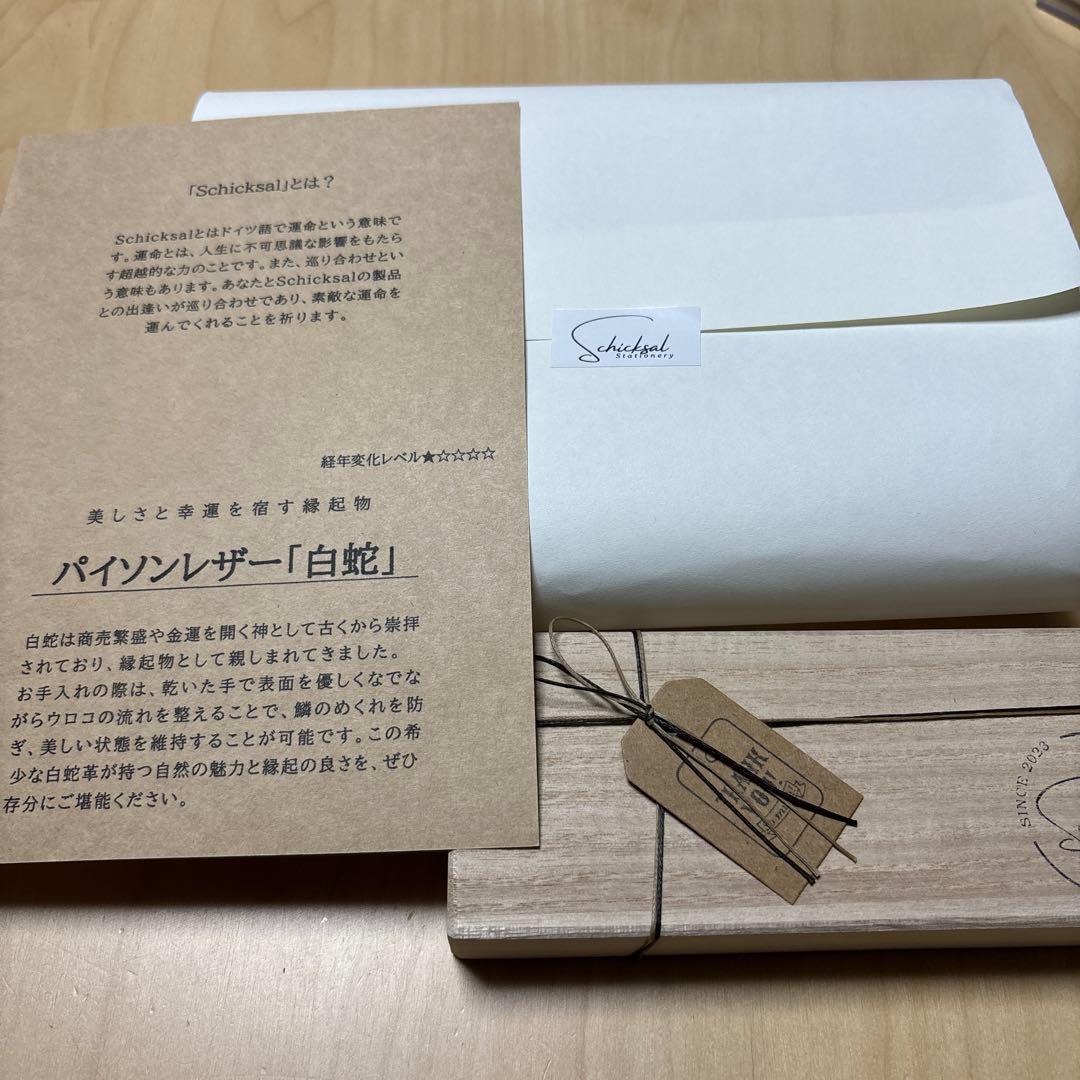 「Schicksal」とは？
Schicksalとはドイツ語で運命という意味で
す。運命とは、人生に不可思議な影響をもたら
す超越的な力のことです。また、巡り合わせとい
う意味もあります。あなたとSchicksalの製品
との出逢いが巡り合わせであり、素敵な運命を
運んでくれることを祈ります。
経年変化レベル★☆☆☆☆
美しさと幸運を宿す縁起物
パイソンレザー「白蛇」
白蛇は商売繁盛や金運を開く神として古くから崇拝
されており、縁起物として親しまれてきました。
お手入れの際は、乾いた手で表面を優しくなでな
がらウロコの流れを整えることで、鱗のめくれを防
ぎ、美しい状態を維持することが可能です。この希
少な白蛇革が持つ自然の魅力と縁起の良さを、ぜひ
存分にご堪能ください。
Schicksal
Stationery
THANK
YOU
SINCE 2023